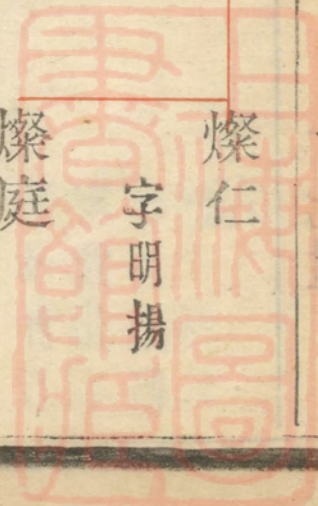 燦仁
字明揚
燦庭